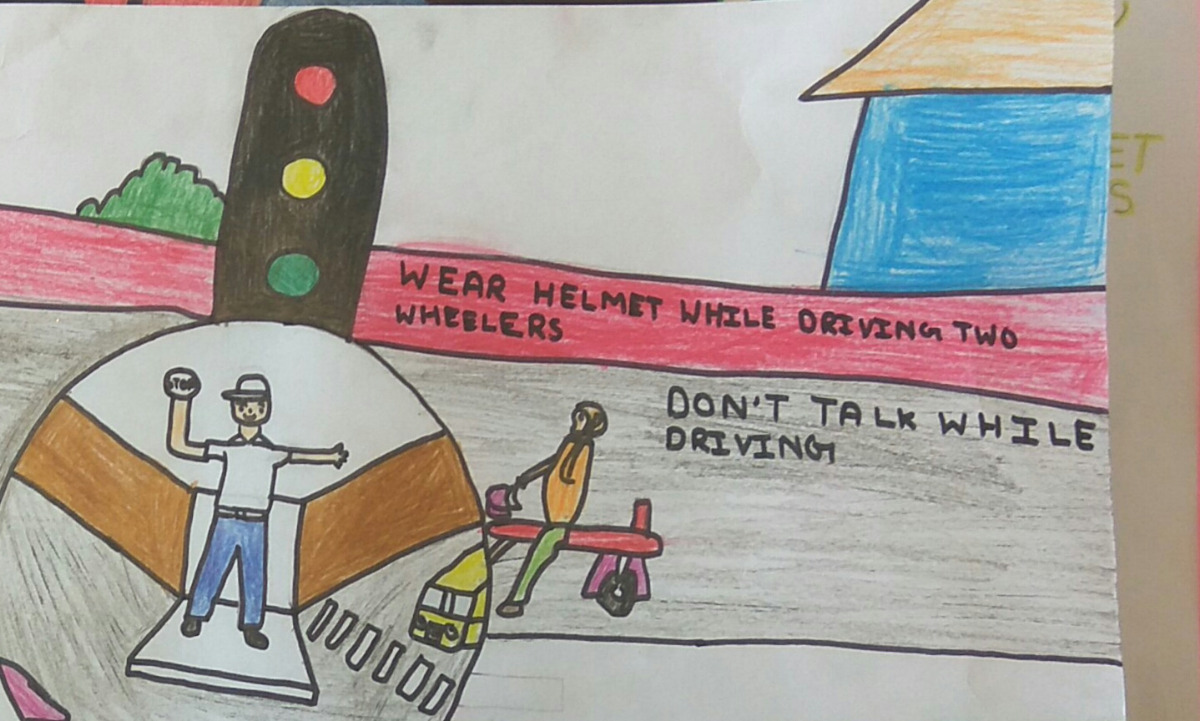 WEAR HELMET WHILE DRIVING TWO
WHEELERS
DON'T TALK WHILE
DRIVING
STOP
ET
S